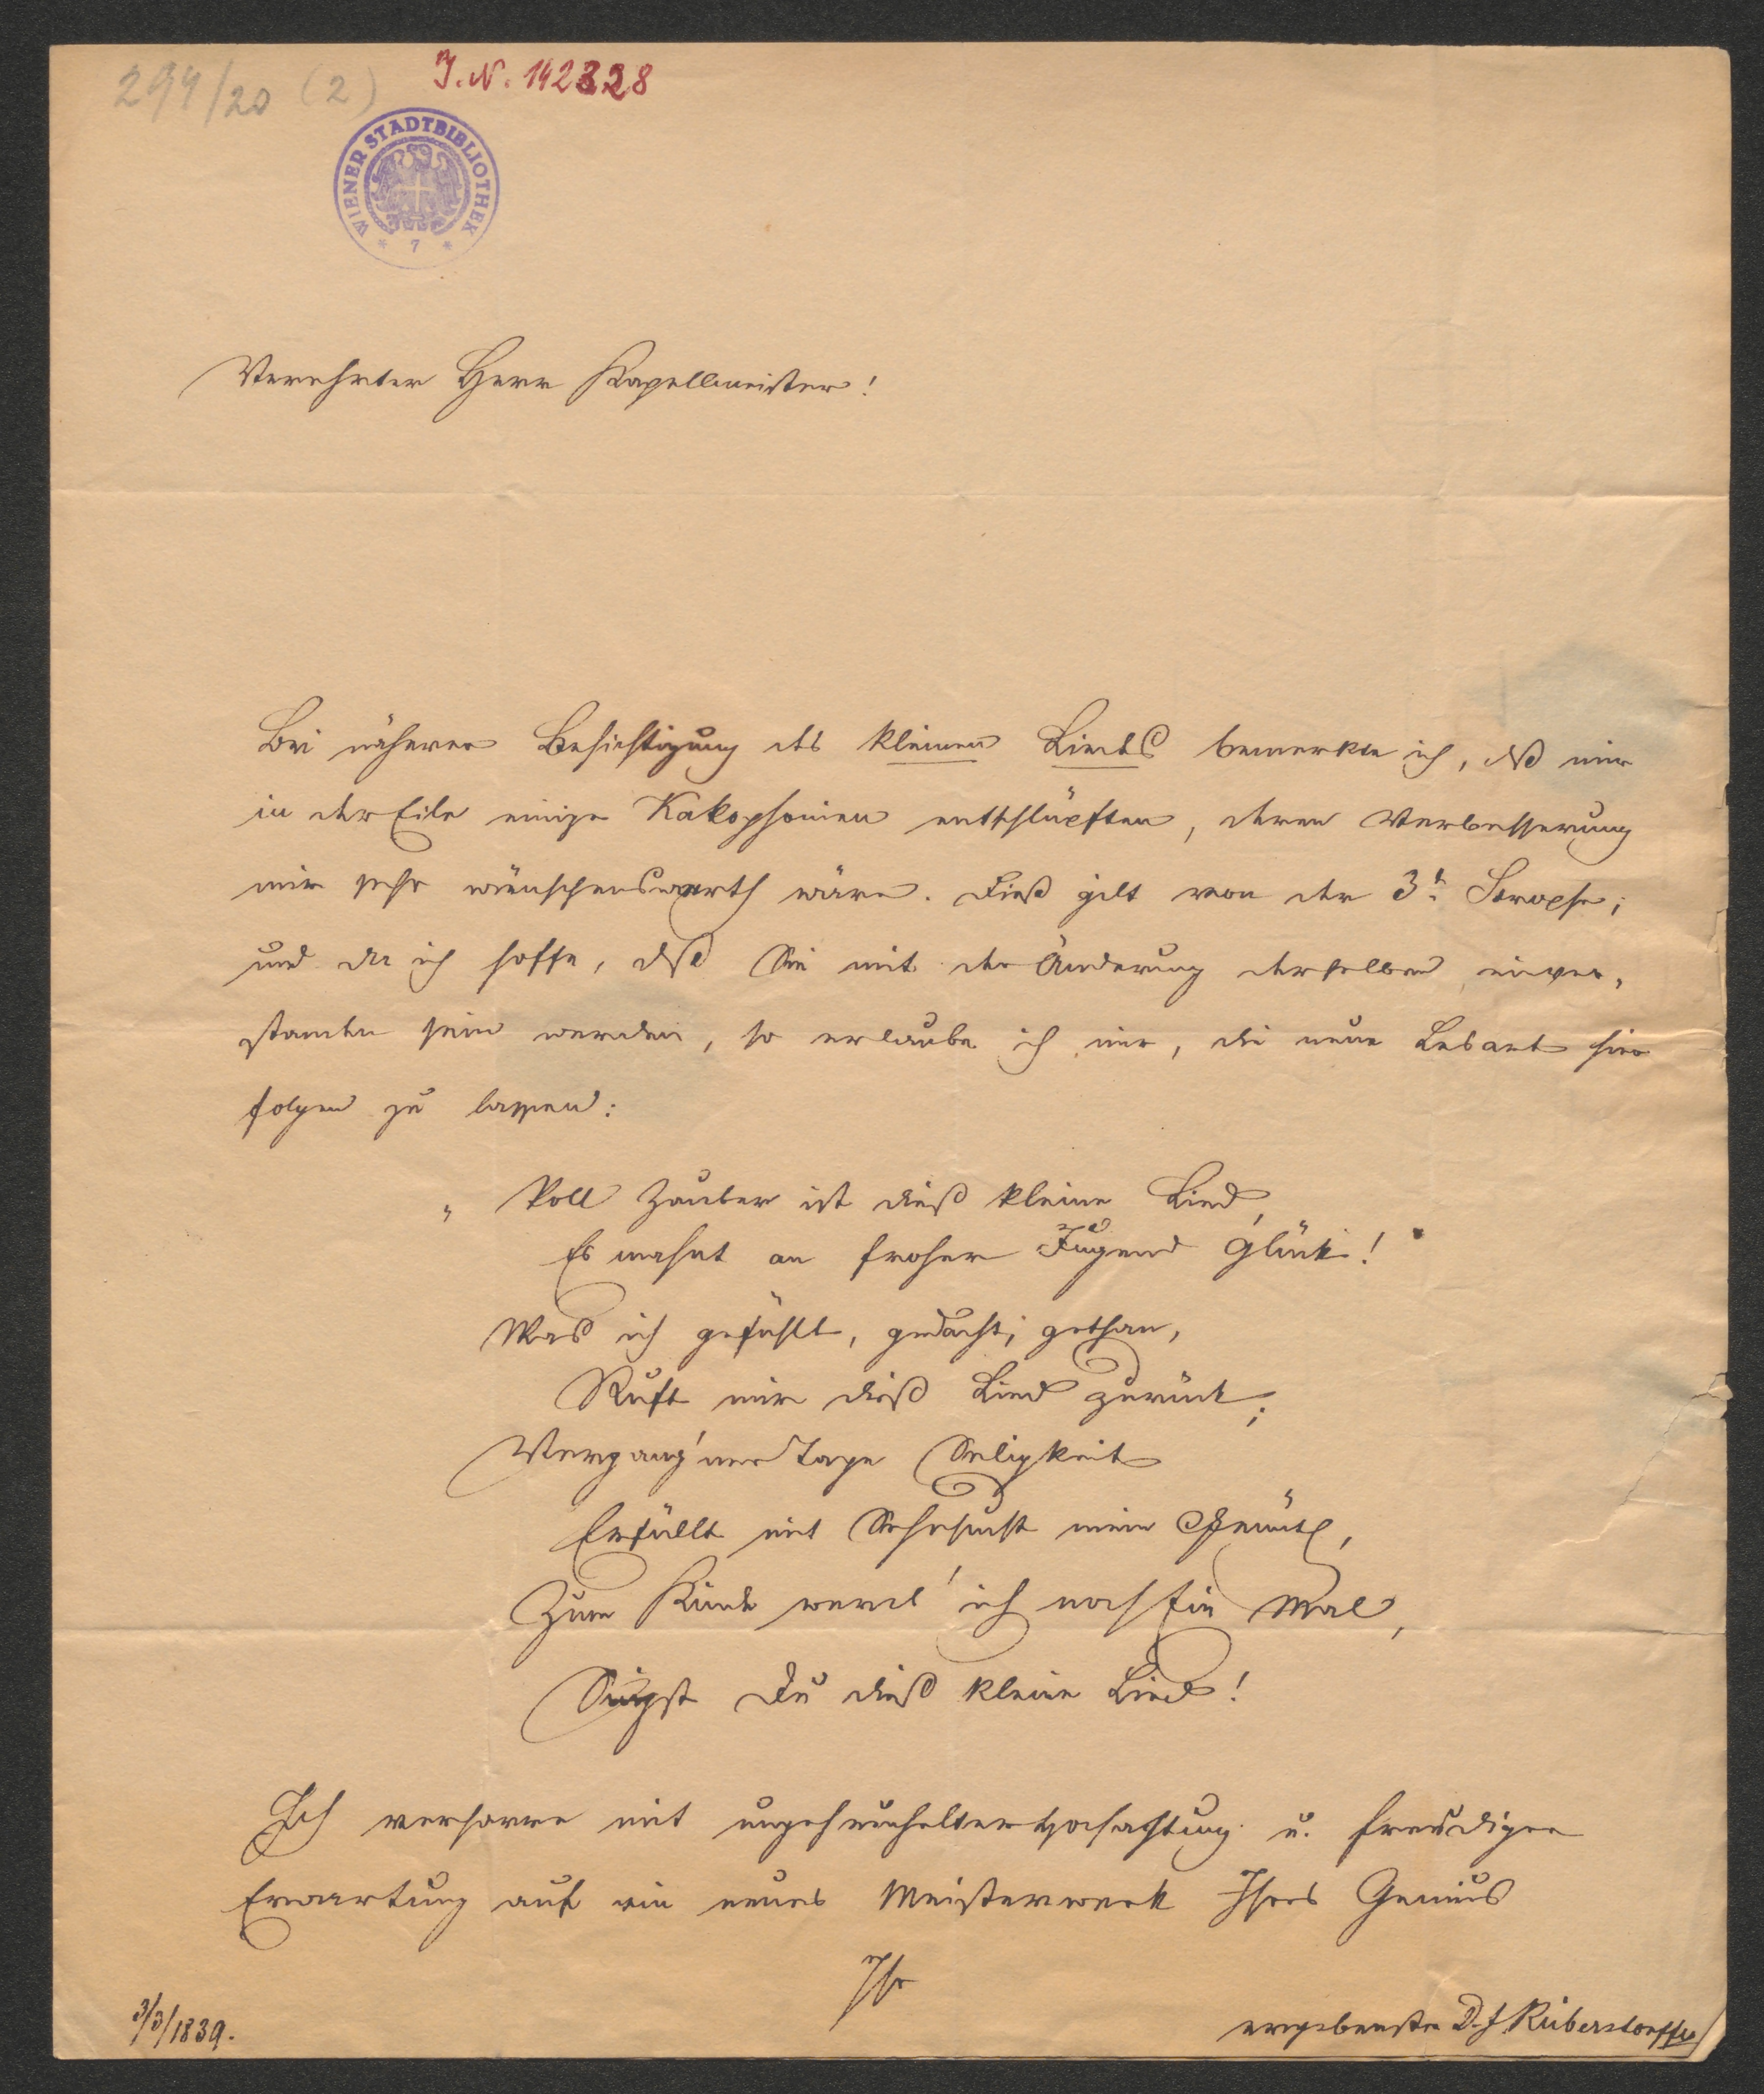 294/20 (2)
I.N. 142328
WIENER STADTBIBLIOTHEK
* 7 *
Verehrter Herr Kapellmeister!
Bei näherer Besichtigung des kleinen Liedes bemerkte ich, daß mir
in der Eile einige Kakophonien entschlüpften, deren Verbesserung
mir sehr wünschenswerth wäre. Dieß gilt von der 3t. Strophe;
und da ich hoffe, daß Sie mit der Änderung derselben einver-
standen sein werden, so erlaube ich mir, die neue Lesart hier
folgen zu lassen:
„ Voll Zauber ist dieß kleine Lied,
Es mahnt an froher Jugend Glück! "
Was ich gefühlt, gedacht, gethan,
Ruft mir dieß Lied zurück;
Vergang'ner Tage Seligkeit
Erfüllt mit Sehnsucht mein Gemüth,
Zum Kinde werd' ich noch Ein Mal,
Singst Du dieß kleine Lied!
Ich verharre mit ungeheuchelter Hochachtung u. freudiger
Erwartung auf ein neues Meisterwerk Ihres Genius
Ihr
3/3/1839.
ergebenster D. J. Rüberstorffer